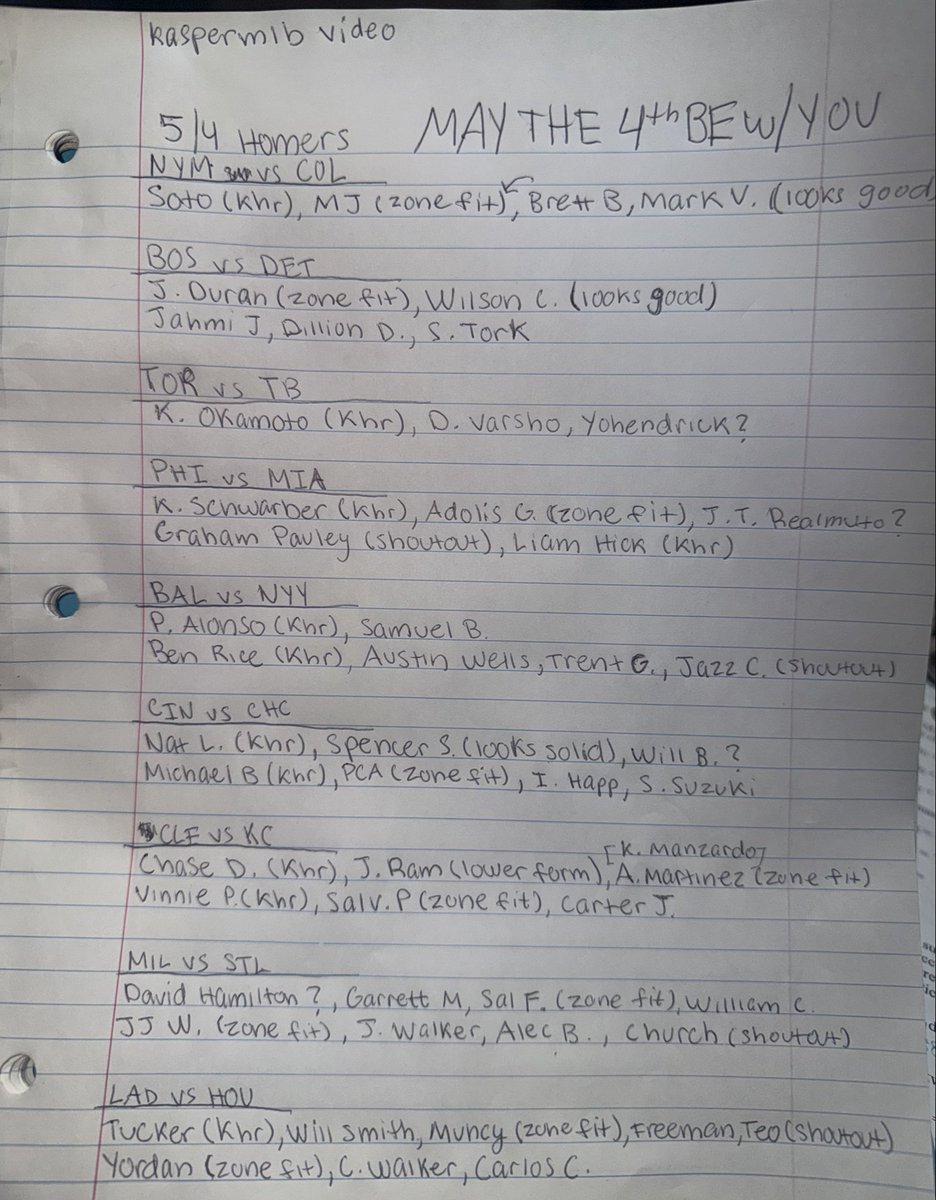 kaspermlb video
5/4 Homers MAY THE 4th BE W/YOU
NYM vs COL
Soto (Khr), MJ (zone fit), Brett B, Mark V. (looks good
BOS vs DET
J. Duran (zone fit), Wilson C. (looks good)
Jahmi J, Dillion D., S. Tork
TOR vs TB
K. Okamoto (Khr), D. Varsho, Yohendrick?
PHI vs MIA
K. Schwarber (Khr), Adolis G. (zone fit), J.T. Realmuto?
Graham Pauley (shoutout), Liam Hick (Khr)
BAL vs NYY
P. Alonso (Khr), Samuel B.
Ben Rice (Khr), Austin Wells, Trent G., Jazz C. (shoutout)
CIN vs CHC
Nat L. (Khr), Spencer S. (looks solid), Will B. ?
Michael B (Khr), PCA (zone fit), I. Happ, S. Suzuki
CLE vs KC
[K. Manzardo]
Chase D. (Khr), J. Ram (lower form), A. Martinez (zone fit)
Vinnie P. (Khr), Salv. P (zone fit), Carter J.
MIL VS STL
David Hamilton ?, Garrett M, Sal F. (zone fit), William C.
JJ W. (zone fit), J. Walker, Alec B., Church (shoutout)
LAD vs HOU
Tucker (Khr), Will Smith, Muncy (zone fit), Freeman, Teo (shoutout)
Yordan (zone fit), C. Walker, Carlos C.